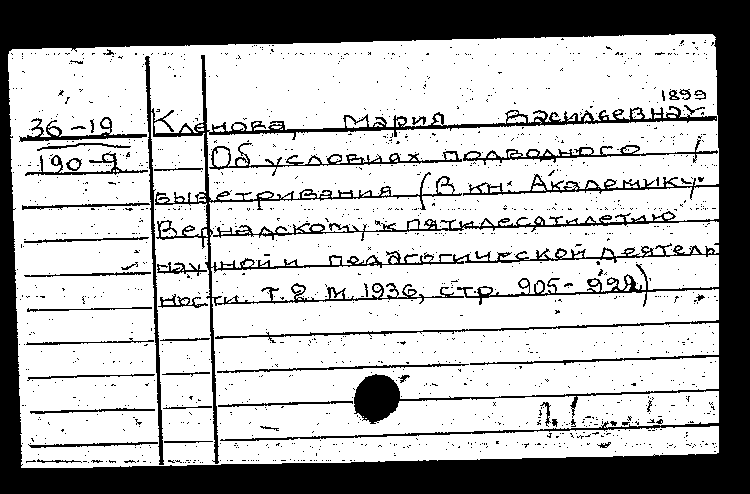 1899
36-19 Кленова, Мария Васильевна
190-9 Об условиях подводного
выветривания (В кн: Академику
Вернадскому к пятидесятилетию
научной и педагогической деятель
ности. т. 2. М. 1936, стр. 905-922)